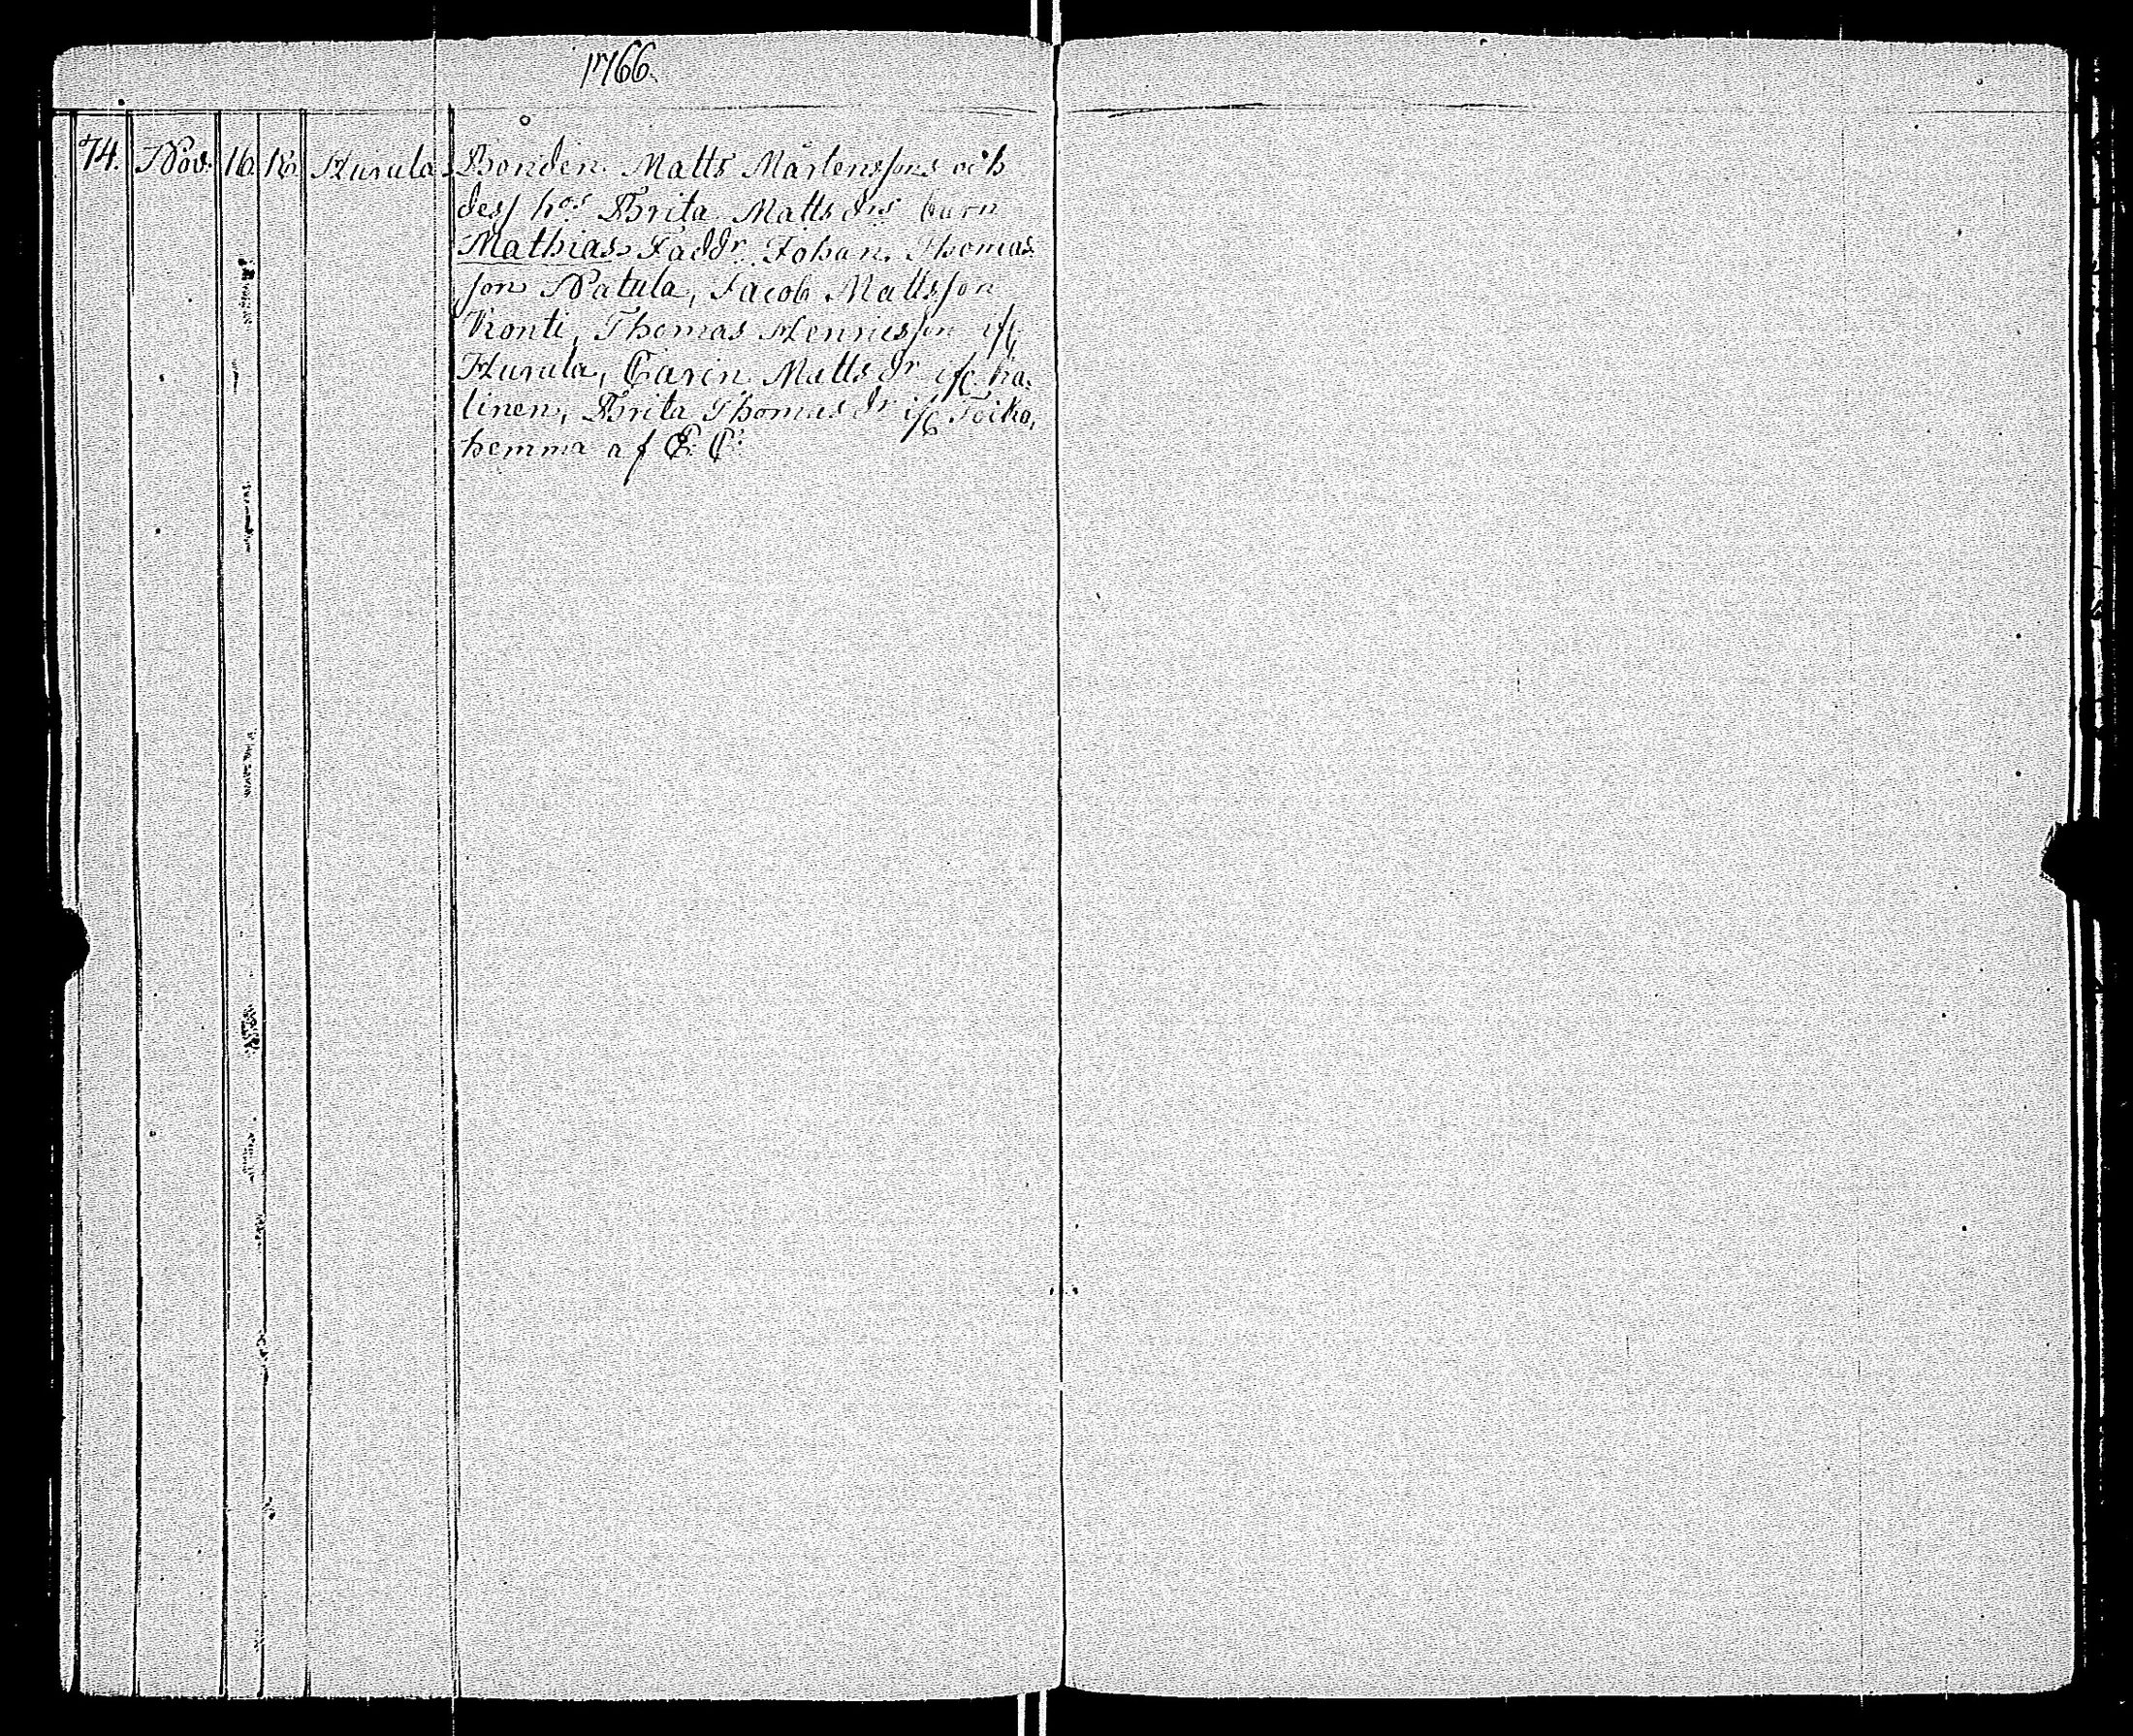 1766.
74. Nov. 16. 18. Hurula. Bonden Matts Mårtenssons och
dess ho:s Brita Matts drs barn
Mathias Faddr. Johan Thomas
son Natula, Jacob Mattsson
Konti, Thomas Henricsson
Hurula, Carin Matts dr
linen, Brita Thomas dr
hemma af E. C.